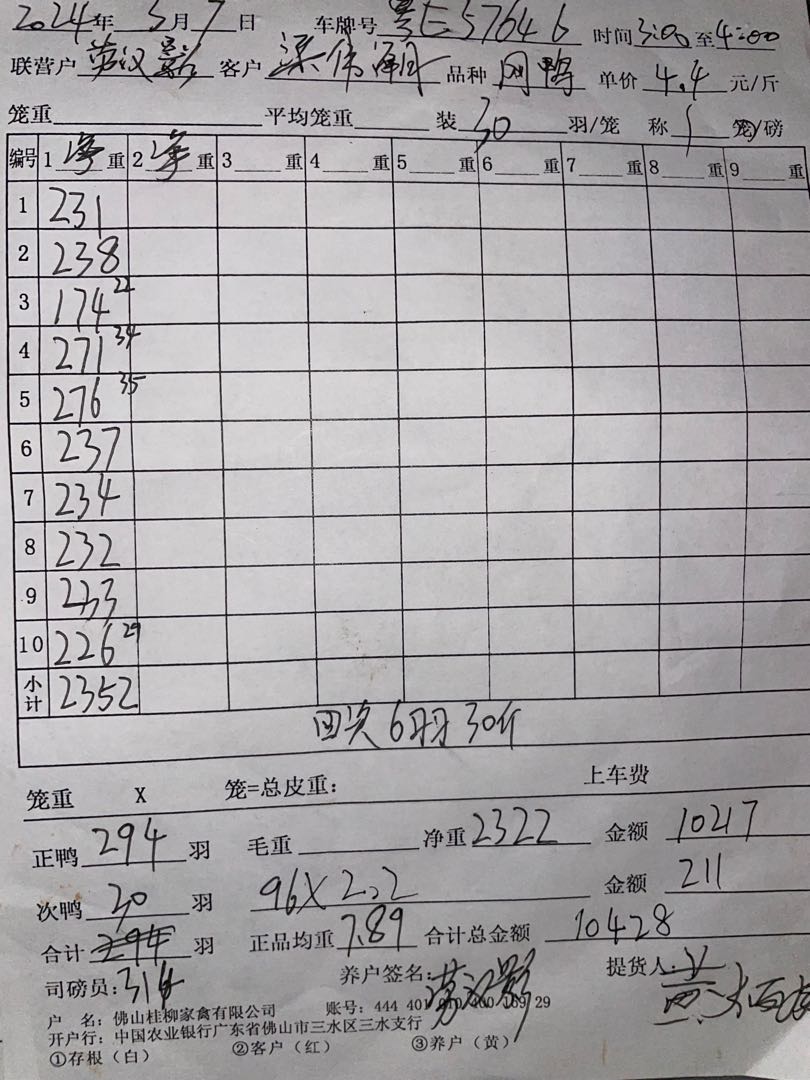 2024年 5月 7日 车牌号 粤E57646 时间 3:00 至 4:00
联营户 客户 品种 网鸭 单价 4.4 元/斤
笼重 平均笼重 装 30 羽/笼 称 1 笼/磅
编号 1 净 重 2 净 重 3 重 4 重 5 重 6 重 7 重 8 重 9 重
1 231
2 238
3 174 22
4 271 34
5 276 35
6 237
7 234
8 232
9 233
10 226 29
小计 2352
回决 6羽 30斤
笼重 X 笼=总皮重： 上车费
正鸭 294 羽 毛重 净重 2322 金额 10217
次鸭 30 羽 96X2.2 金额 211
合计 294 羽 正品均重 7.89 合计总金额 10428
司磅员： 314 养户签名： 提货人：
户 名：佛山桂柳家禽有限公司 账号：444 401 29
开户行：中国农业银行广东省佛山市三水区三水支行
①存根（白） ②客户（红） ③养户（黄）